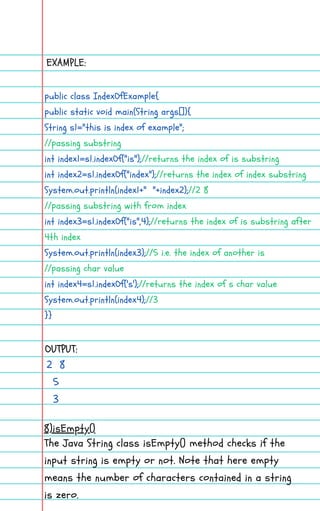 EXAMPLE:
public class IndexOfExample{
public static void main(String args[]){
String s1="this is index of example";
//passing substring
int index1=s1.indexOf("is");//returns the index of is substring
int index2=s1.indexOf("index");//returns the index of index substring
System.out.println(index1+"  "+index2);//2 8
//passing substring with from index
int index3=s1.indexOf("is",4);//returns the index of is substring after
4th index
System.out.println(index3);//5 i.e. the index of another is
//passing char value
int index4=s1.indexOf('s');//returns the index of s char value
System.out.println(index4);//3
}}
OUTPUT:
2  8
5
3
8)isEmpty()
The Java String class isEmpty() method checks if the
input string is empty or not. Note that here empty
means the number of characters contained in a string
is zero.